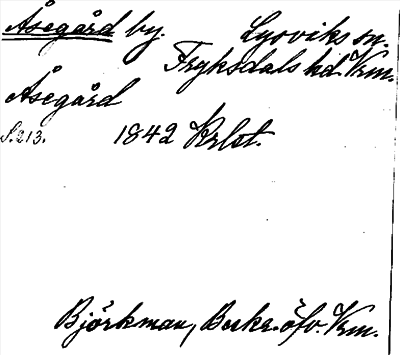 Åsegård by. Lysviks sn.
Fryksdals hd. Vrm.
Åsegård
S. 213. 1842 Krlst.
Björkman, Beskr. öfv. Vrm.